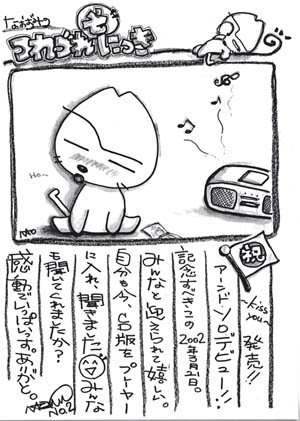 つれづれ
にっき
Ho~
NAO
祝 ~kiss you~ 発売!!
アーンドソロデビュー!!
記念すべきこの2002年3月21日。
みんなと迎えられて嬉しい。
自分も今、CD版をプレーヤー
に入れ、聞きました みんな
も聞いてくれましたか?
感動でいっぱいっす。ありがと。
No.2